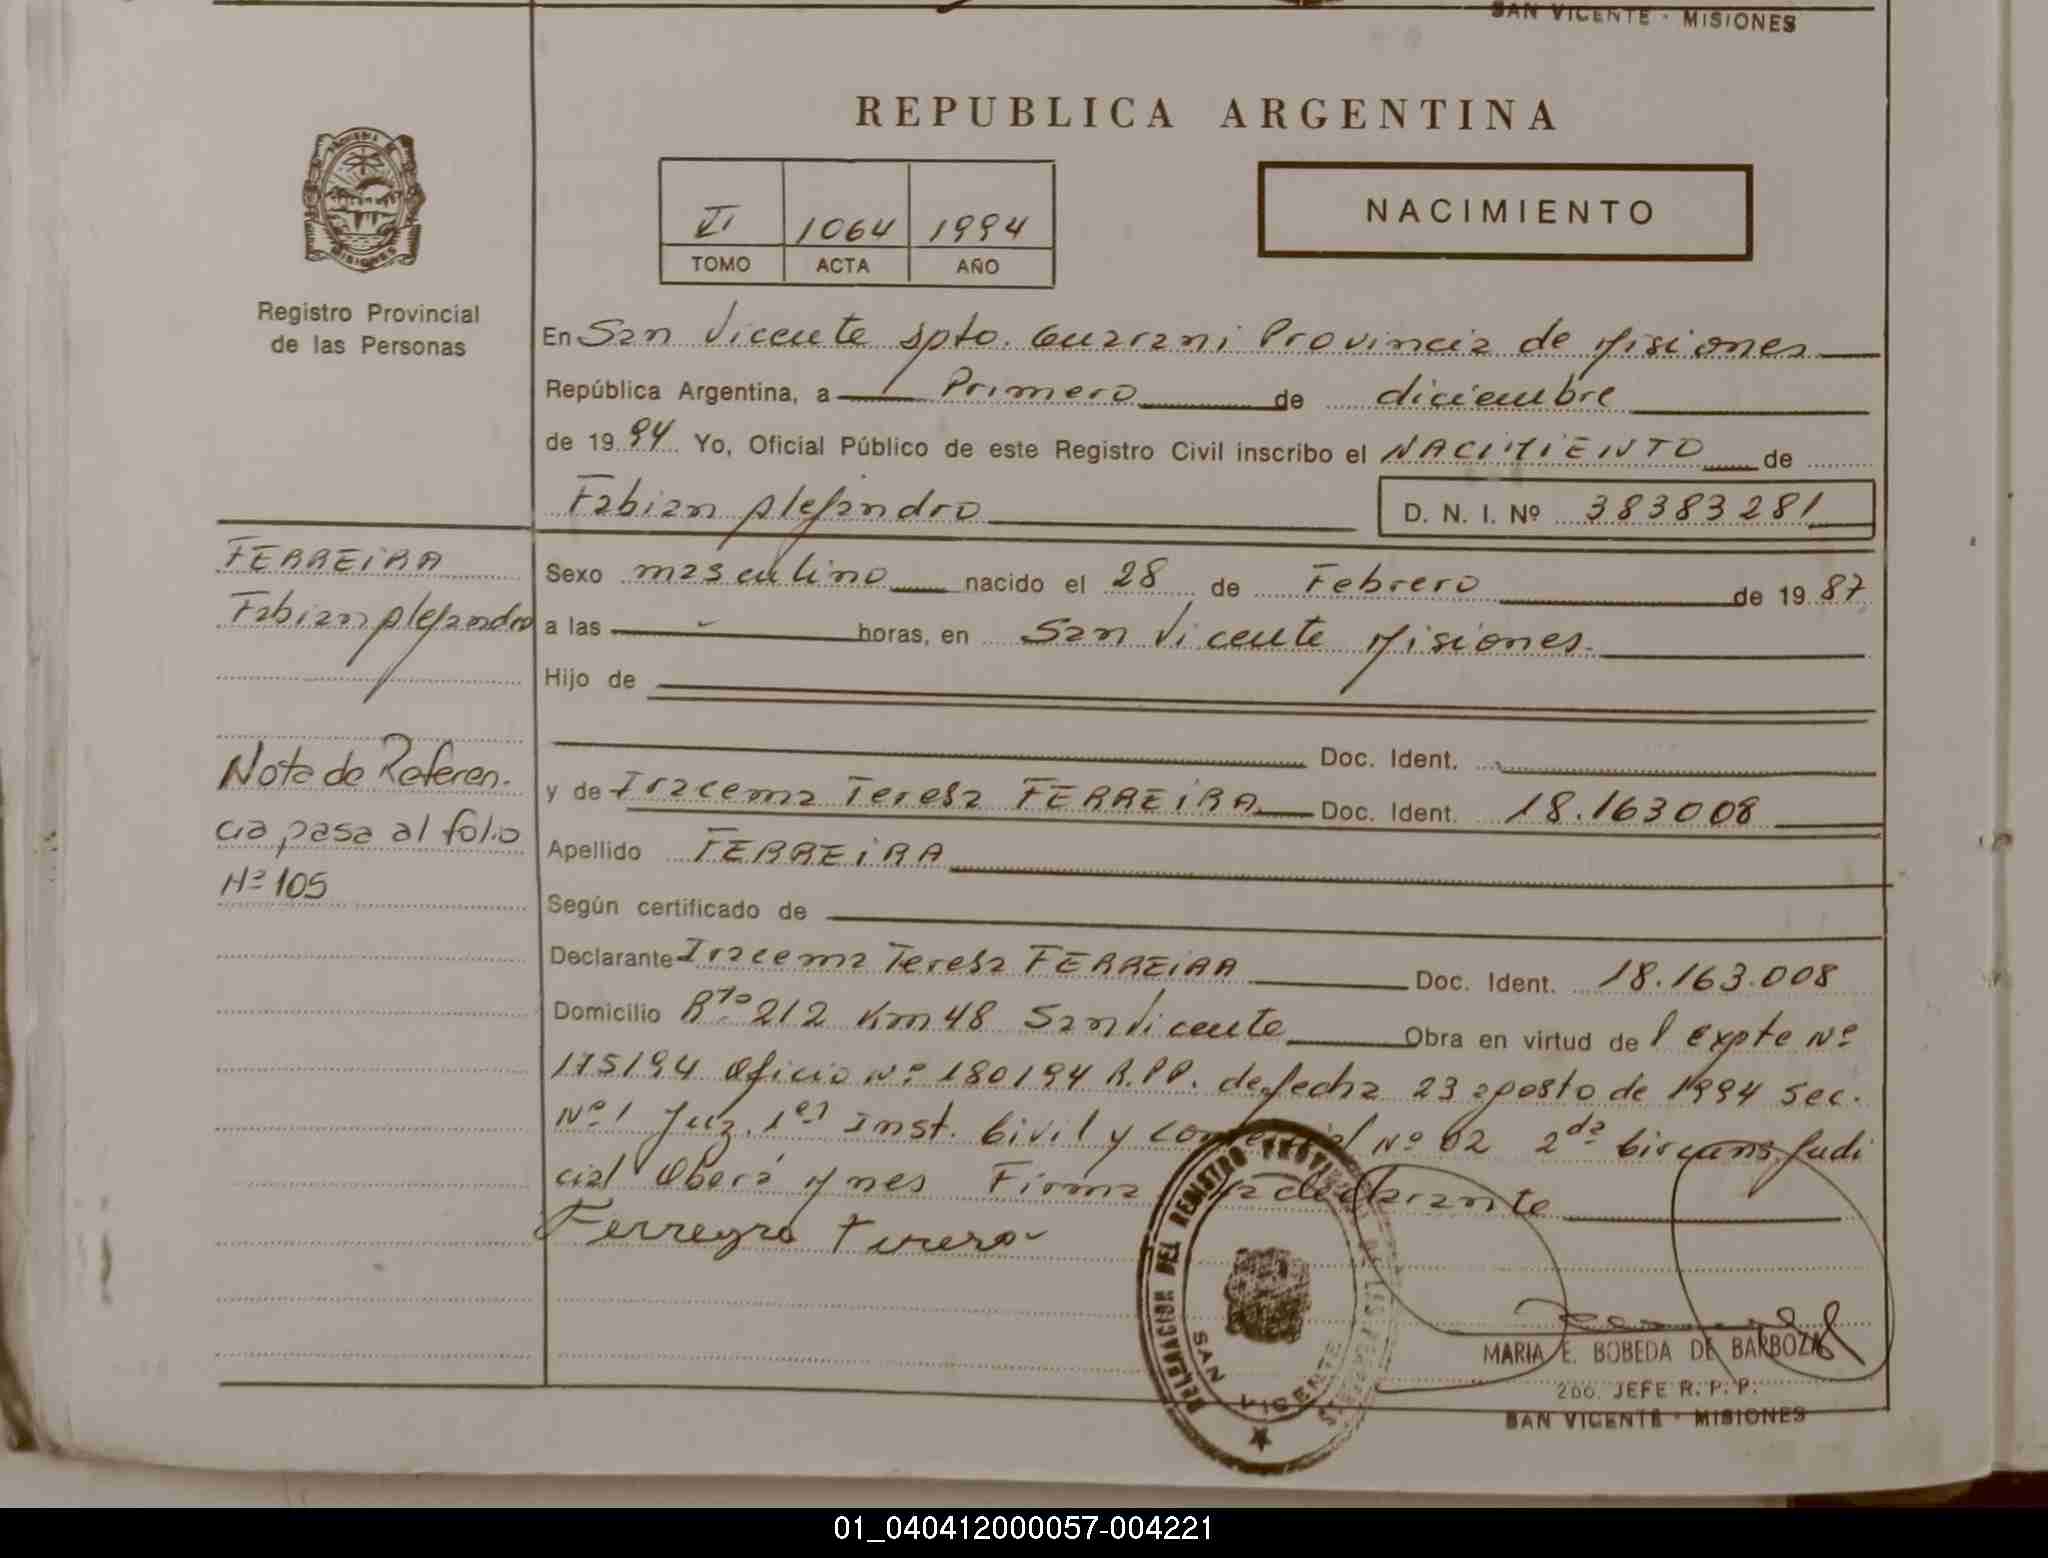 SAN VICENTE - MISIONES
REPUBLICA ARGENTINA
NACIMIENTO
VI 1064 1994
TOMO ACTA AÑO
Registro Provincial
de las Personas
En San Vicente Dpto. Guarani Provincia de Misiones
República Argentina, a Primero de diciembre
de 1994 Yo, Oficial Público de este Registro Civil inscribo el NACIMIENTO de
Fabian Alejandro D. N. I. Nº 38383281
FERREIRA
Fabian Alejandro
Nota de Referen-
cia pasa al folio
Nº 105
Sexo masculino nacido el 28 de Febrero de 1987
a las horas, en San Vicente Misiones.
Hijo de
Doc. Ident.
y de Iracema Teresa FERREIRA Doc. Ident. 18.163008
Apellido FERREIRA
Según certificado de
Declarante Iracema Teresa FERREIRA Doc. Ident. 18.163.008
Domicilio Rta 212 Km 48 San Vicente Obra en virtud del Expte Nº
175/94 Oficio Nº 180/94 R.P.P. de fecha 23 agosto de 1994 Sec.
Nº 1 Juz. 1era Inst. Civil y Comercial Nº 02 2da Circuns. Judi
cial Oberá Mnes Firma la declarante
Ferreyra Teresa
DELEGACION DEL REGISTRO PROVINCIAL
SAN VICENTE
MARIA E. BOBEDA DE BARBOZA
2do. JEFE R. P. P.
SAN VICENTE - MISIONES
01_040412000057-004221